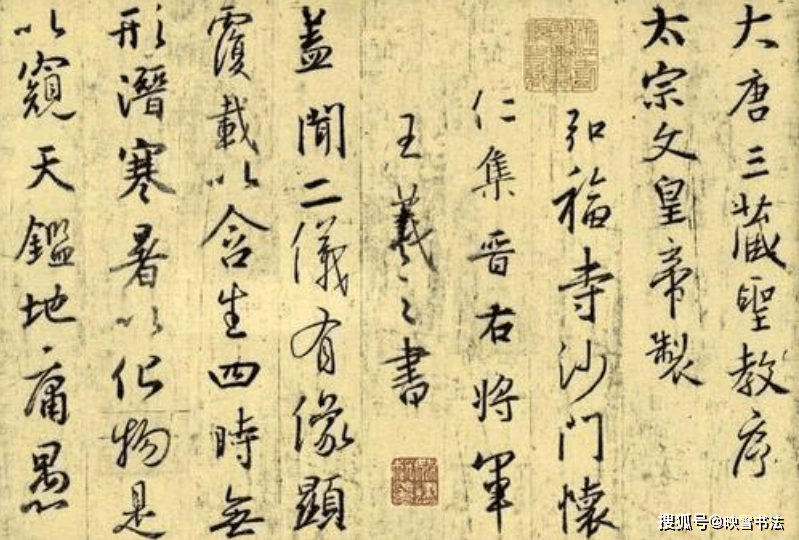 大唐三藏聖教序
太宗文皇帝製
弘福寺沙門懷
仁集晉右將軍
王羲之書
蓋聞二儀有像顯
覆載以含生四時無
形潛寒暑以化物是
以窺天鑑地庸愚
搜狐号@映雪书法